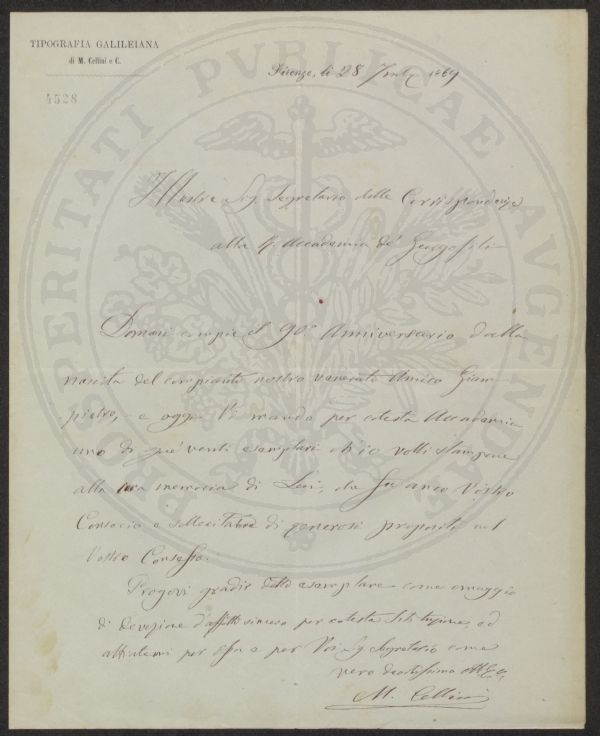 TIPOGRAFIA GALILEIANA
di M. Cellini e C.
4528
Firenze, li 28 1869
Illustre Sig. Segretario delle Corrispondenze
alla R. Accademia de' Georgofili
Domani compie il 90° Anniversario dalla
nascita del compianto nostro venerato Amico Giam
pietro, e oggi Vi mando per cotesta Accademia
uno di que' venti esemplari ch'io volli stampare
alla memoria di Lui, che fu anco Vostro
Consocio e sollecitatore di generosi propositi nel
Vostro Consesso.
Pregovi gradir detto esemplare come omaggio
di devozione d'affetto sincero per cotesta Istituzione, ed
abbiatemi per essa e per Voi Sig. Segretario come
vero devotissimo
M. Cellini
PROSPERITATI PVBLICAE AVGENDAE